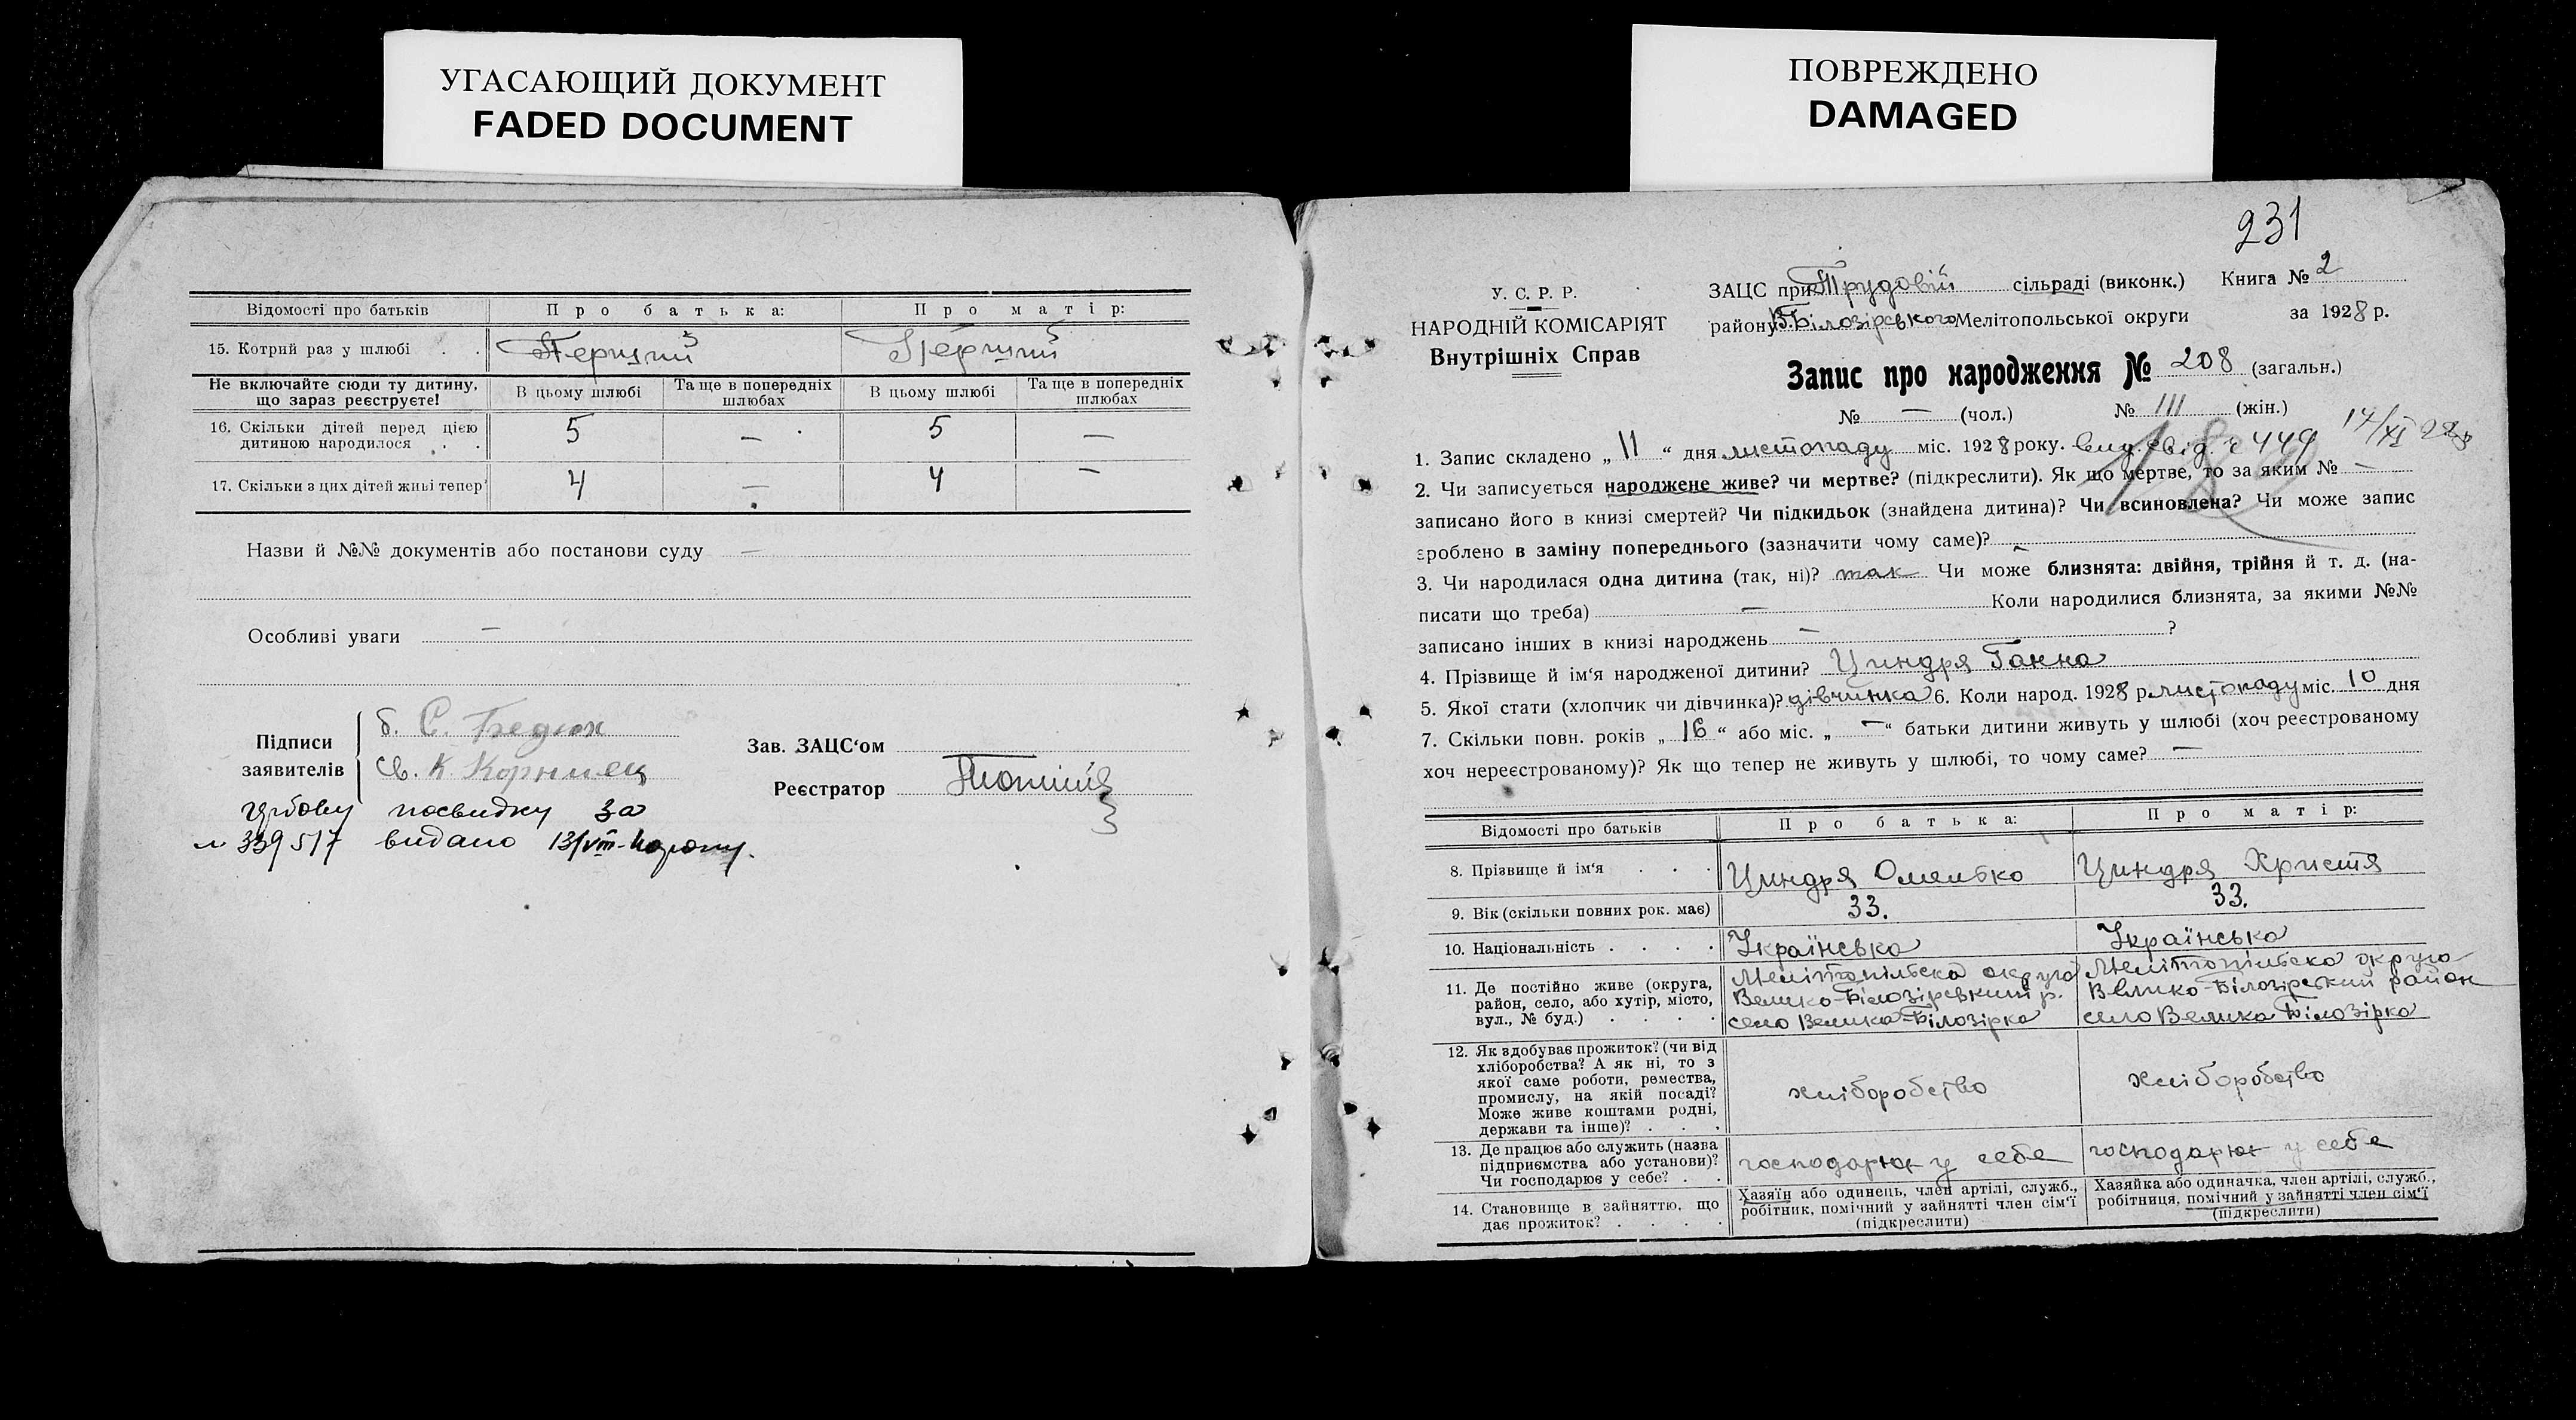 УГАСАЮЩИЙ ДОКУМЕНТ
FADED DOCUMENT
ПОВРЕЖДЕНО
DAMAGED
Відомості про батьків Про батька: Про матір:
15. Котрий раз у шлюбі . . Перший Перший
Не включайте сюди ту дитину, що зараз реєструєте! В цьому шлюбі Та ще в попередніх шлюбах В цьому шлюбі Та ще в попередніх шлюбах
16. Скільки дітей перед цією дитиною народилося . . 5 — 5 —
17. Скільки з цих дітей живі тепер? 4 — 4 —
Назви й №№ документів або постанови суду —
Особливі уваги —
Підписи заявителів
б. С. Бедюх
св. К. Корниец
Зав. ЗАЦС'ом
Реєстратор
посвидку за
№ 339517 видано 13/VIII
231
У. С. Р. Р.
НАРОДНІЙ КОМІСАРІЯТ
Внутрішніх Справ
ЗАЦС при Трудовій сільраді (виконк.) Книга № 2
району В. Білозірського Мелітопольської округи за 1928 р.
Запис про народження № 208 (загальн.)
№ — (чол.) № 111 (жін.)
1. Запис складено „11“ дня листопаду міс. 1928 року. вид. свід. № 449 14/XI 28
2. Чи записується народжене живе? чи мертве? (підкреслити). Як що мертве, то за яким № —
записано його в книзі смертей? Чи підкидьок (знайдена дитина)? Чи всиновлена? Чи може запис
зроблено в заміну попереднього (зазначити чому саме)? —
3. Чи народилася одна дитина (так, ні)? так Чи може близнята: двійня, трійня й т. д. (на-
писати що треба) — Коли народилися близнята, за якими №№
записано інших в книзі народжень — ?
4. Прізвище й ім'я народженої дитини? Циндря Ганна
5. Якої стати (хлопчик чи дівчинка)? дівчинка 6. Коли народ. 1928 р. листопаду міс. 10 дня
7. Скільки повн. років „16“ або міс. „—“ батьки дитини живуть у шлюбі (хоч реєстрованому
хоч нереєстрованому)? Як що тепер не живуть у шлюбі, то чому саме? —
Відомості про батьків Про батька: Про матір:
8. Прізвище й ім'я . . . Циндря Омелько Циндря Христя
9. Вік (скільки повних рок. має) 33. 33.
10. Національність . . . . Українська Українська
11. Де постійно живе (округа, район, село, або хутір, місто, вул., № буд.) . . . . Мелітопільска округа Велико-Білозірський р. село Велика-Білозірка Мелітопільска округа Велико-Білозірский район село Велика Білозірка
12. Як здобуває прожиток? (чи від хліборобства? А як ні, то з якої саме роботи, ремества, промислу, на якій посаді? Може живе коштами родні, держави та інше)? . . . хліборобство хліборобство
13. Де працює або служить (назва підприємства або установи)? Чи господарює у себе? . . господарює у себе господарює у себе
14. Становище в зайняттю, що дає прожиток? . . . . Хазяїн або одинець, член артілі, служб., робітник, помічний у зайнятті член сім'ї (підкреслити) Хазяйка або одиначка, член артілі, служб., робітниця, помічний у зайнятті член сім'ї (підкреслити)